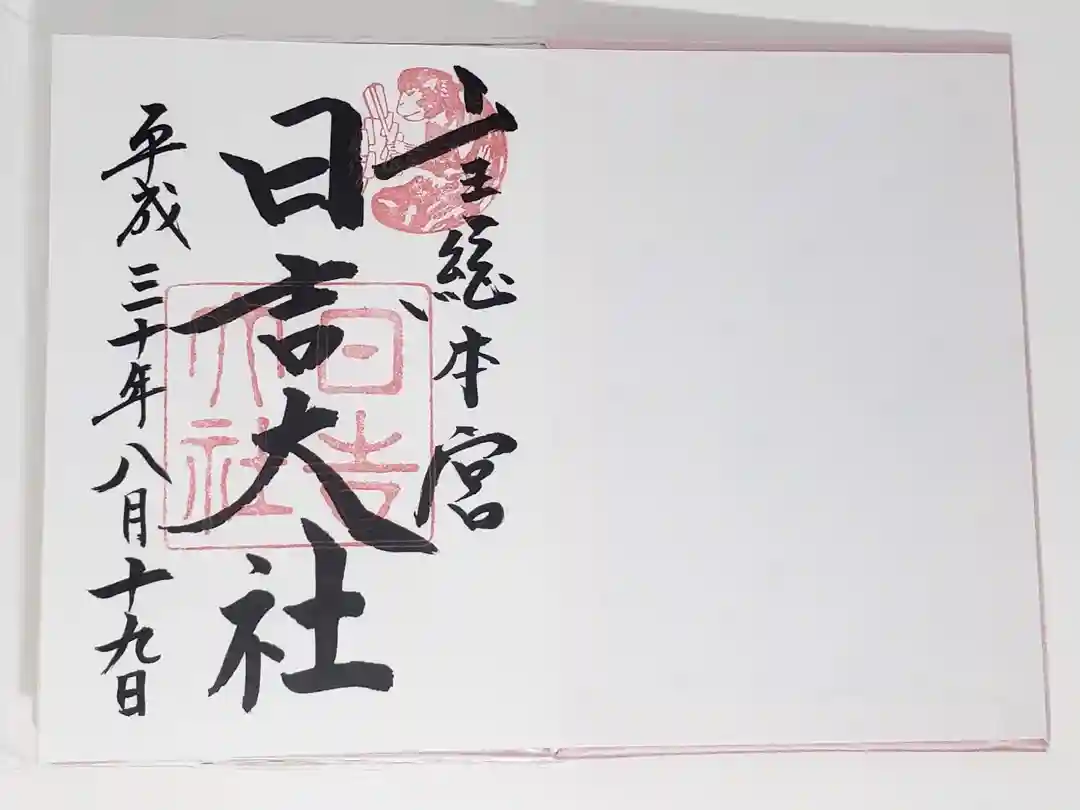 山王総本宮
日吉大社
平成三十年八月十九日
日吉大社